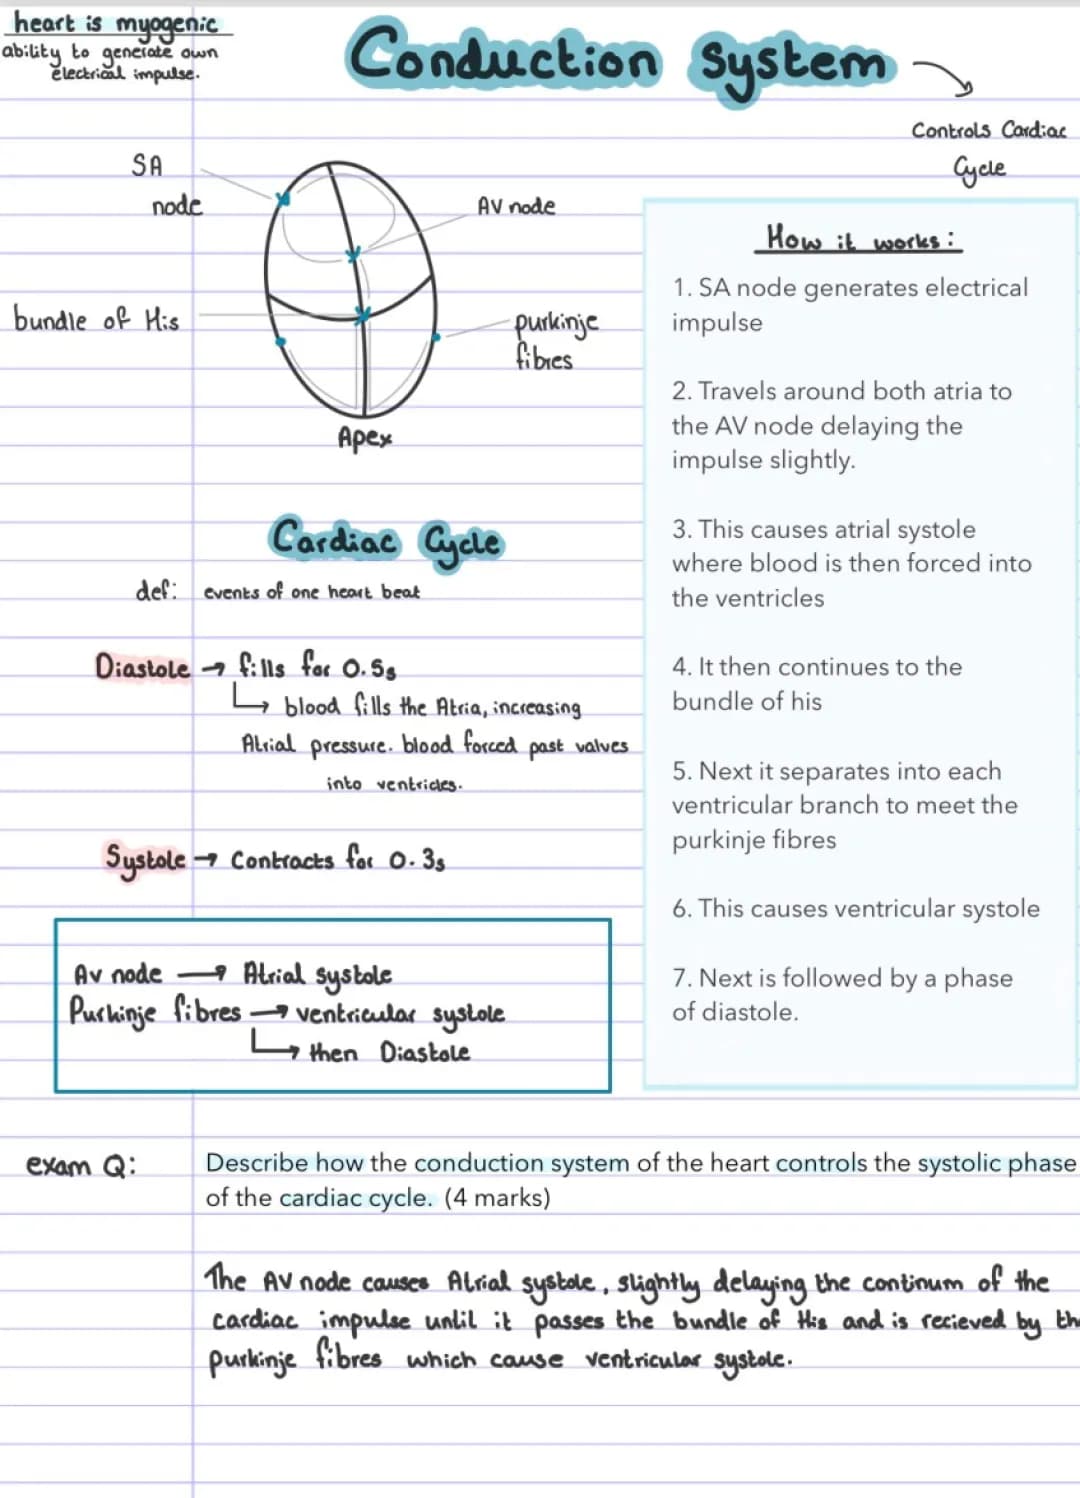 heart is myogenic
ability to generate own
electrical impulse.
Conduction System
Controls Cardiac
Cycle
SA
node
AV node
bundle of His
purkinje
fibres
Apex
How it works:
1. SA node generates electrical
impulse
2. Travels around both atria to
the AV node delaying the
impulse slightly.
3. This causes atrial systole
where blood is then forced into
the ventricles
4. It then continues to the
bundle of his
5. Next it separates into each
ventricular branch to meet the
purkinje fibres
6. This causes ventricular systole
7. Next is followed by a phase
of diastole.
Cardiac Cycle
def: events of one heart beat
Diastole → fills for 0.5s
↳ blood fills the Atria, increasing
Atrial pressure. blood forced past valves
into ventricles.
Systole → Contracts for 0.3s
Av node → Atrial systole
Purkinje fibres → ventricular systole
↳ then Diastole
exam Q:
Describe how the conduction system of the heart controls the systolic phase
of the cardiac cycle. (4 marks)
The AV node causes Atrial systole, slightly delaying the continum of the
cardiac impulse until it passes the bundle of His and is recieved by th
purkinje fibres which cause ventricular systole.